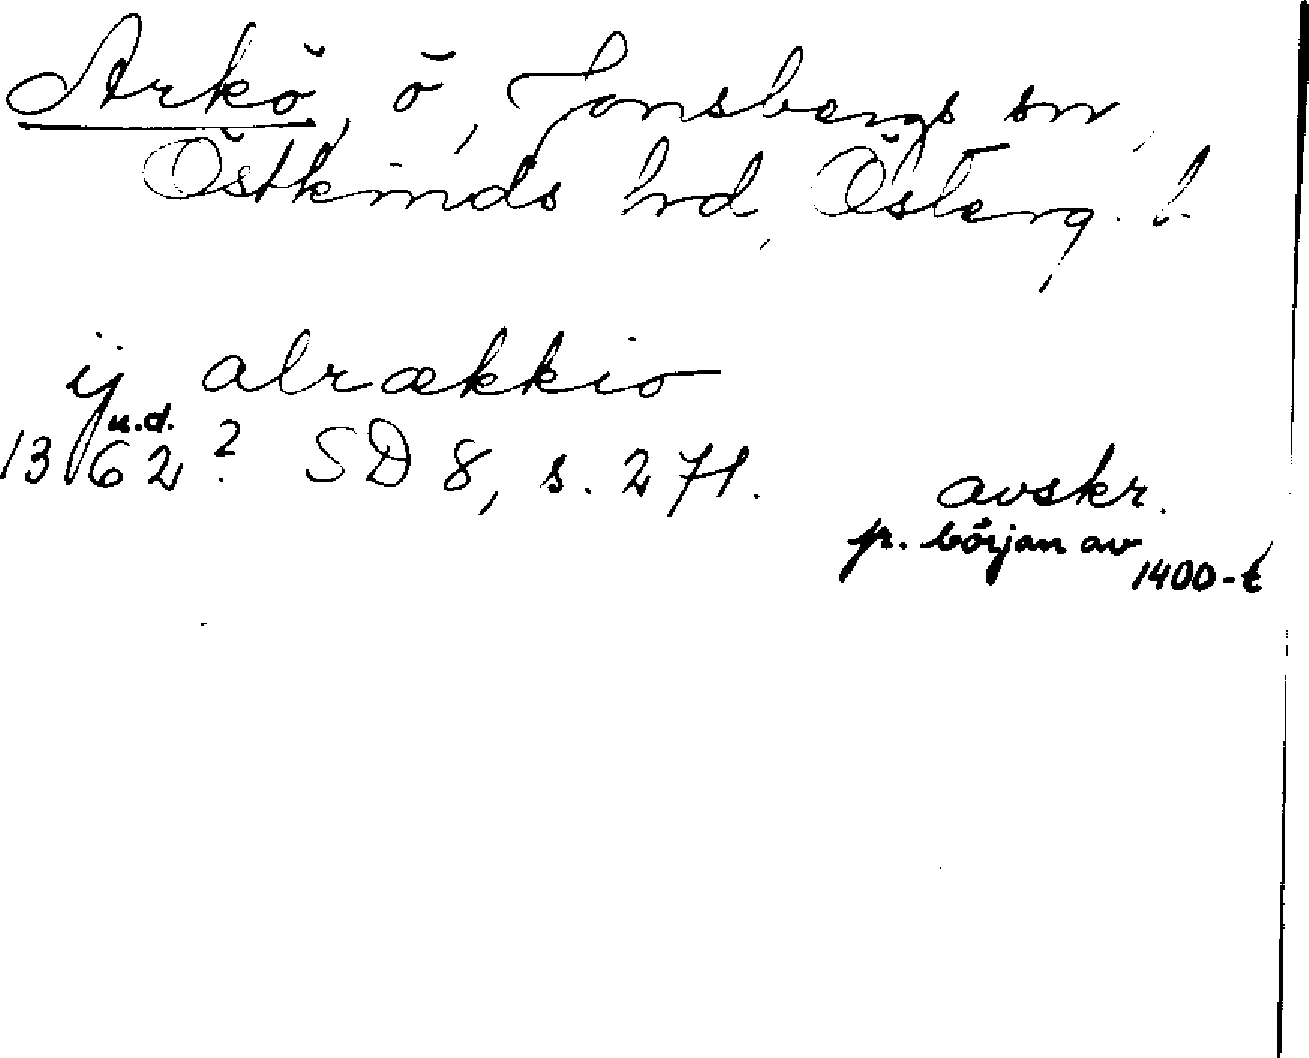 Arkö, ö, Jonsbergs sn,
Östkinds hd, Österg. l.
ij alrækkio
u.d.
1362? SD 8, s. 271.
avskr.
fr. början av
1400-t